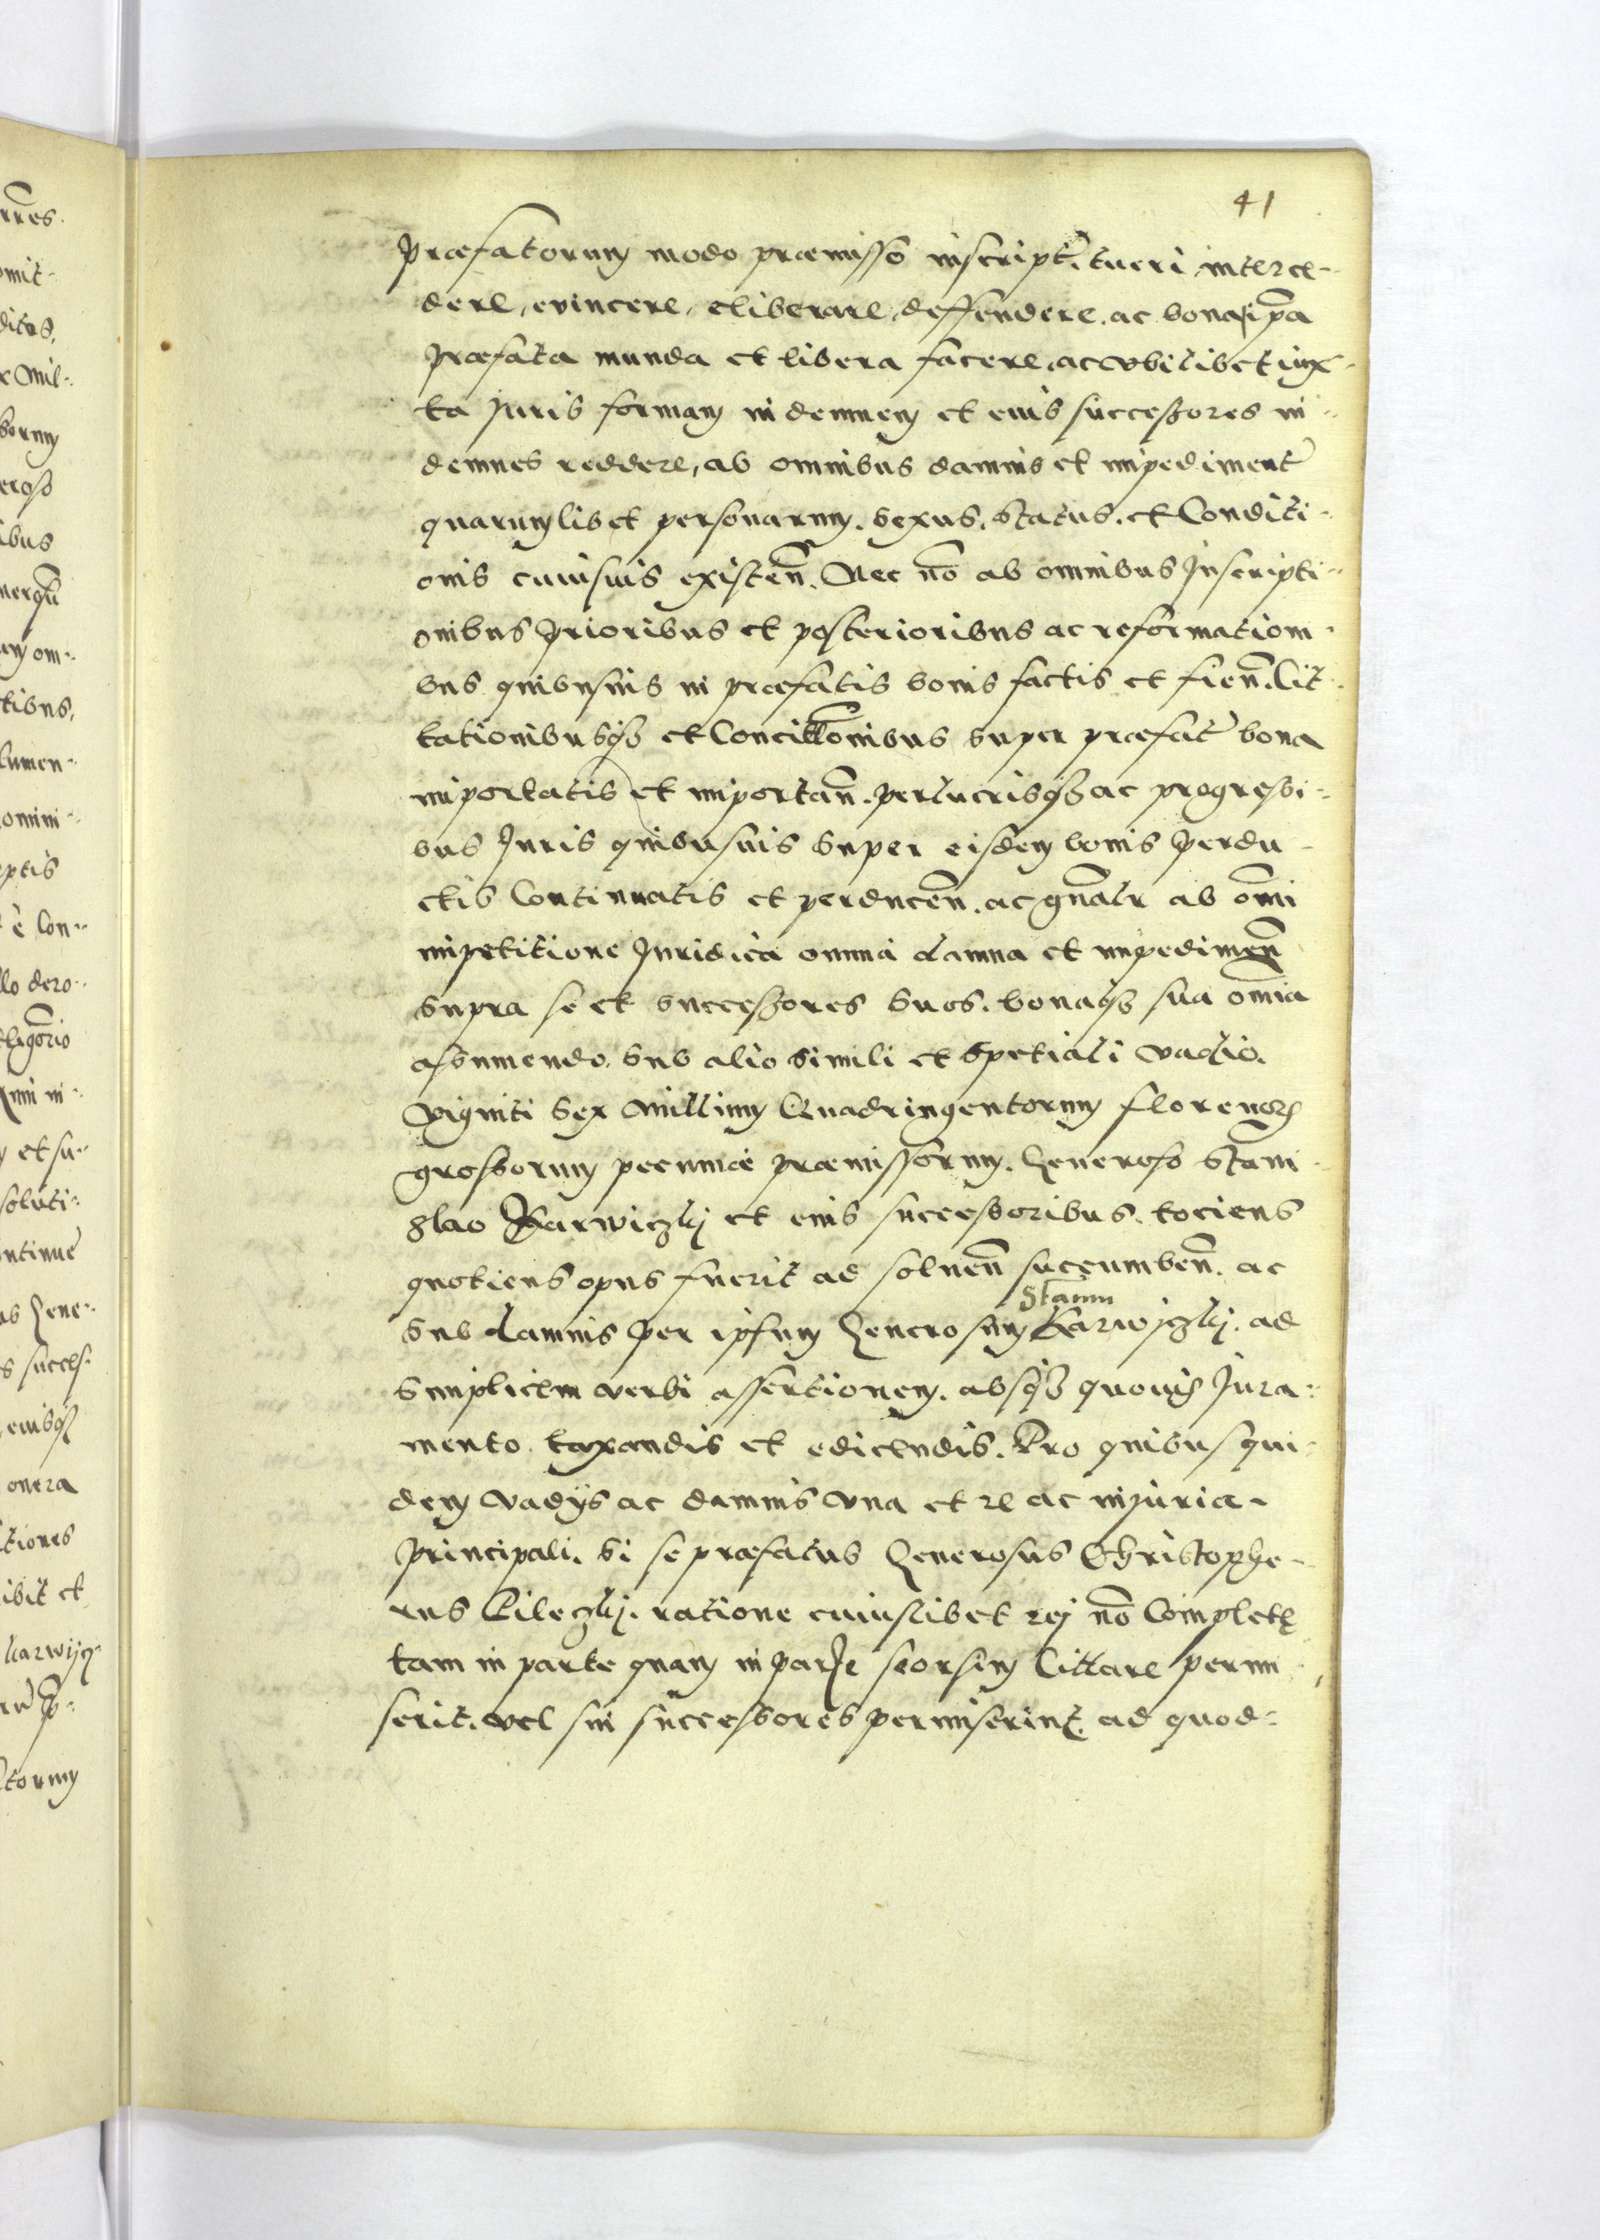 41
præfatorum modo præmisso inscript. tueri interce-
dere, evincere, eliberare, deffendere. ac bona ipa
præfata munda et libera facere. ac vbilibet iux-
ta Juris formam indemnem et eius successores in-
demnes reddere, ab omnibus damnis et impediment
quarumlibet personarum. Sexus. Status. et Conditi-
onis cuiusuis existen. Nec no ab omnibus Inscripti-
onibus prioribus et posterioribus ac reformationi-
bus quibusuis in præfatis bonis factis et fien. Cit-
tationibusq3 et Concittonibus super præfat bona
importatis et importan. per lucrisq3 ac progressi-
bus Juris quibusuis super eisdem bonis perdu-
ctis Continuatis et perducen. ac gnalr ab omi
impetitione Juridica omnia damna et impedimen
supra se et successores suos. bonaq3 sua omia
assumendo. Sub alio simili et Spetiali vadio.
Viginti Sex Millium Quadringentorum floreno4
grossorum pecuniæ præmissorum. Generoso Stani-
slao Karwiczkj et eius successoribus. tociens
quotiens opus fuerit ad soluen succumben. ac
Stanisl
Sub damnis per ipsum Generosum Karwiczkj. ad
Simplicem verbi assertionem. absq3 quouis Jura-
mento. taxandis et edicendis. Pro quibus qui-
dem vadijs ac damnis vna et re ac iniuria
principali. Si se præfatus Generosus Christophe-
rus Pileczkj. ratione cuiuslibet rej no Complete
tam in parte quam in parte seorsim Cittare permi-
serit. vel sui successores permiserint. ad quod-